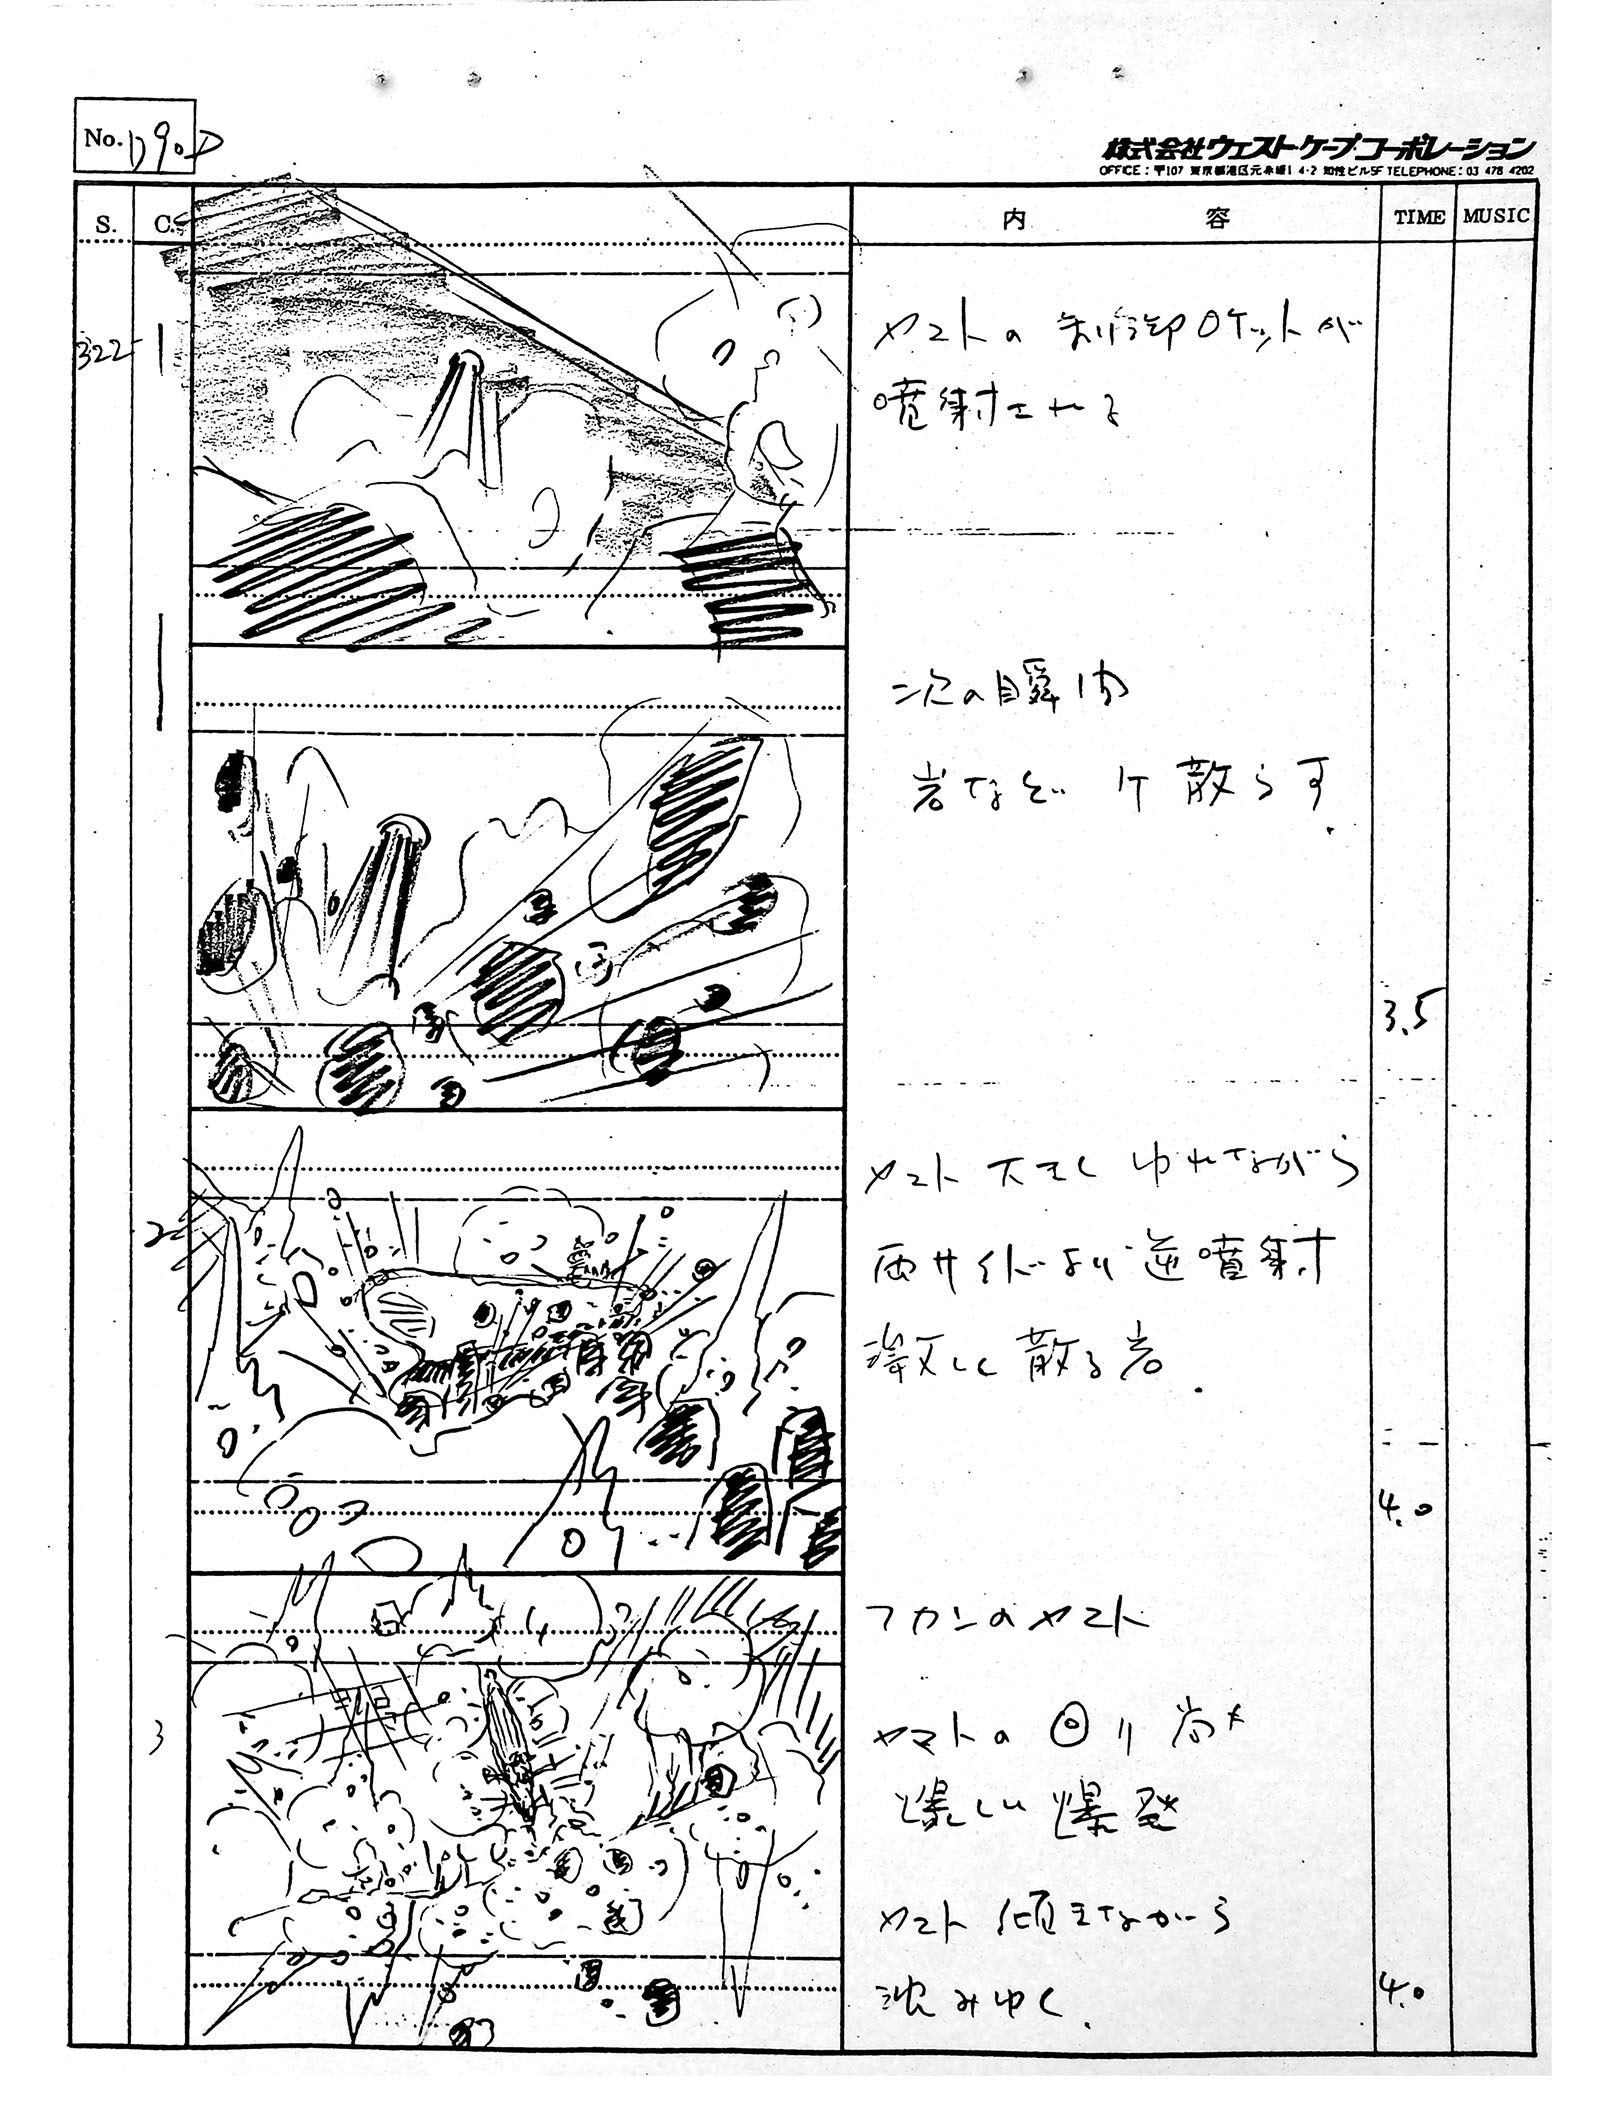 No.
株式会社ウェスト・ケープ・コーポレーション
OFFICE：〒107 東京都港区元赤坂1 4-2 TELEPHONE：03 478 4202
S. C. 内容 TIME MUSIC
322 1
ヤマトの制御ロケットが
噴射される
次の瞬間
岩など ケ散らす
3.5
2
ヤマト大きくゆれながら
両サイドより逆噴射
散る岩
4.0
3
フカンのヤマト
ヤマトの回り尚も
激しい爆発
ヤマト傾きながら
沈みゆく.
4.0